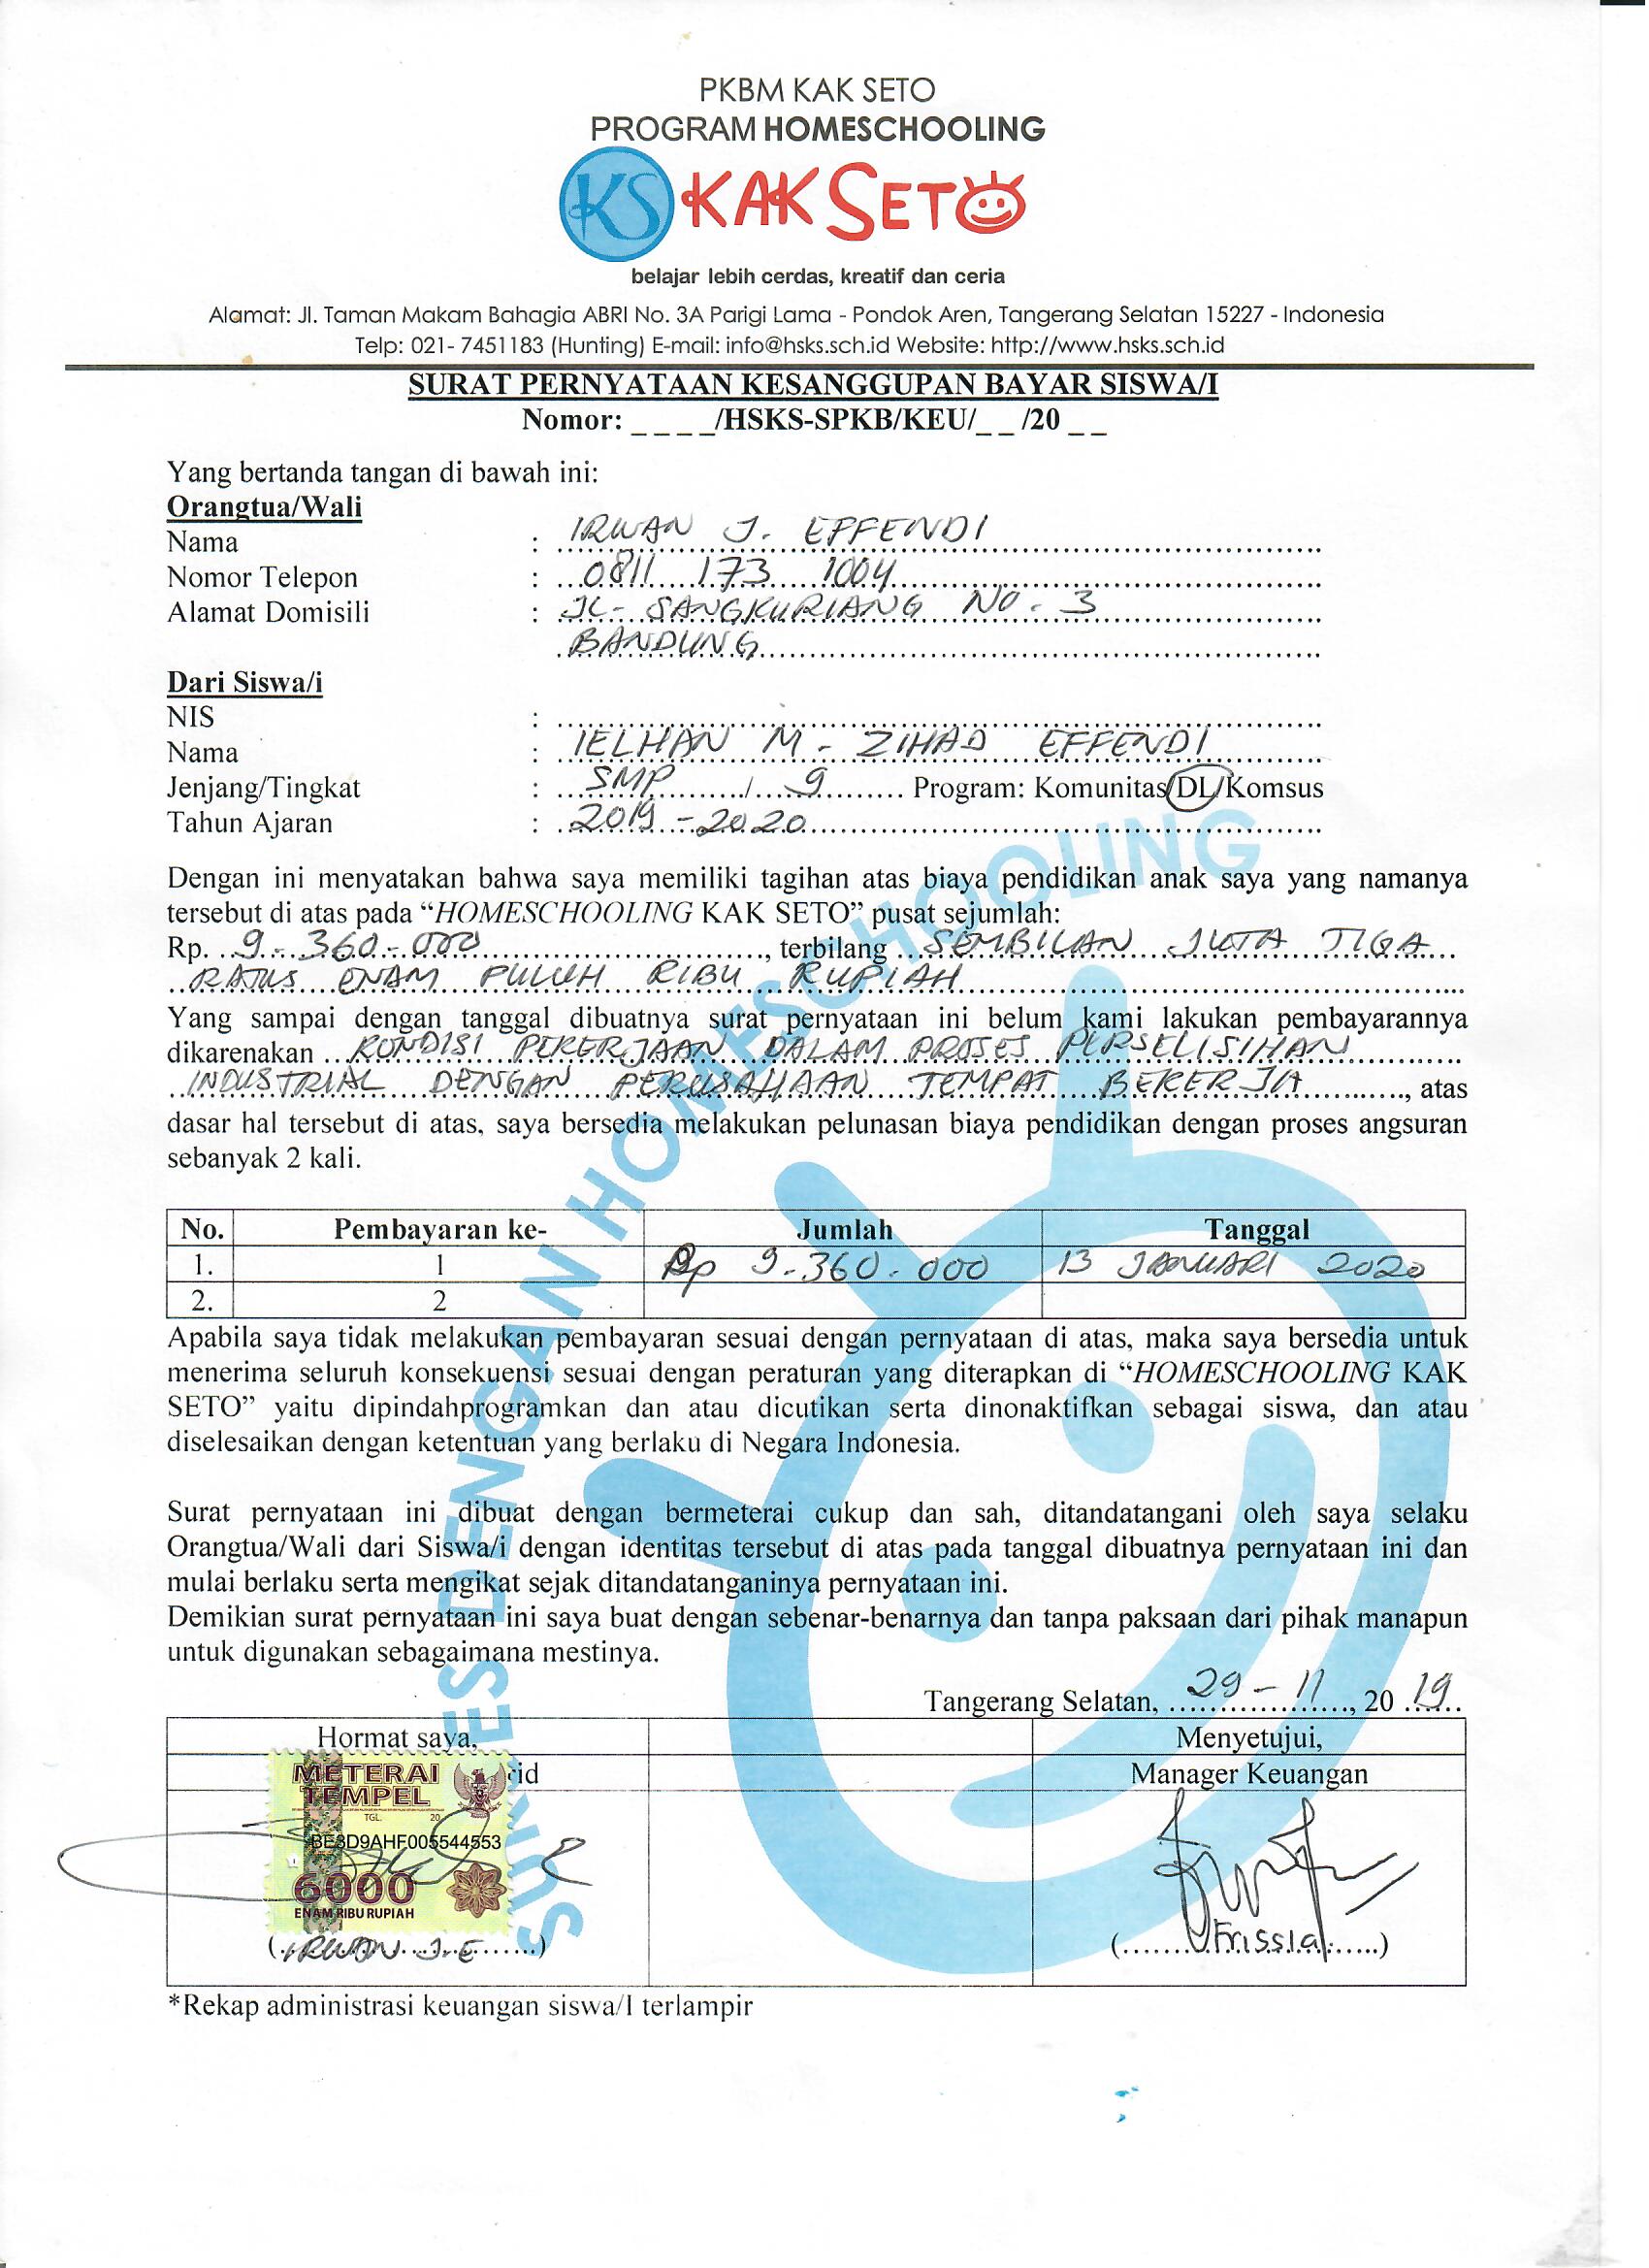 PKBM KAK SETO
PROGRAM HOMESCHOOLING
KS KAK SETO
belajar lebih cerdas, kreatif dan ceria
Alamat: Jl. Taman Makam Bahagia ABRI No. 3A Parigi Lama - Pondok Aren, Tangerang Selatan 15227 - Indonesia
Telp: 021- 7451183 (Hunting) E-mail: info@hsks.sch.id Website: http://www.hsks.sch.id
SURAT PERNYATAAN KESANGGUPAN BAYAR SISWA/I
Nomor: _ _ _ _/HSKS-SPKB/KEU/_ _ /20 _ _
Yang bertanda tangan di bawah ini:
Orangtua/Wali
Nama : IRWAN J. EFFENDI
Nomor Telepon : 0811 173 1004
Alamat Domisili : JL. SANGKURIANG NO. 3
BANDUNG
Dari Siswa/i
NIS :
Nama : IELHAN M. ZIHAD EFFENDI
Jenjang/Tingkat : SMP / 9 Program: Komunitas/DL/Komsus
Tahun Ajaran : 2019 - 2020
Dengan ini menyatakan bahwa saya memiliki tagihan atas biaya pendidikan anak saya yang namanya
tersebut di atas pada “HOMESCHOOLING KAK SETO” pusat sejumlah:
Rp. 9.360.000, terbilang SEMBILAN JUTA TIGA
RATUS ENAM PULUH RIBU RUPIAH
Yang sampai dengan tanggal dibuatnya surat pernyataan ini belum kami lakukan pembayarannya
dikarenakan KONDISI PEKERJAAN DALAM PROSES PERSELISIHAN
INDUSTRIAL DENGAN PERUSAHAAN TEMPAT BEKERJA, atas
dasar hal tersebut di atas, saya bersedia melakukan pelunasan biaya pendidikan dengan proses angsuran
sebanyak 2 kali.
No. Pembayaran ke- Jumlah Tanggal
1. 1 Rp 9.360.000 13 JANUARI 2020
2. 2
Apabila saya tidak melakukan pembayaran sesuai dengan pernyataan di atas, maka saya bersedia untuk
menerima seluruh konsekuensi sesuai dengan peraturan yang diterapkan di “HOMESCHOOLING KAK
SETO” yaitu dipindahprogramkan dan atau dicutikan serta dinonaktifkan sebagai siswa, dan atau
diselesaikan dengan ketentuan yang berlaku di Negara Indonesia.
Surat pernyataan ini dibuat dengan bermeterai cukup dan sah, ditandatangani oleh saya selaku
Orangtua/Wali dari Siswa/i dengan identitas tersebut di atas pada tanggal dibuatnya pernyataan ini dan
mulai berlaku serta mengikat sejak ditandatanganinya pernyataan ini.
Demikian surat pernyataan ini saya buat dengan sebenar-benarnya dan tanpa paksaan dari pihak manapun
untuk digunakan sebagaimana mestinya.
Tangerang Selatan, 29 - 11, 20 19
Hormat saya, Menyetujui,
Manager Keuangan
METERAI
TEMPEL
TGL. 20
BE3D9AHF005544553
6000
ENAM RIBU RUPIAH
(IRWAN J.E) (Frissia)
*Rekap administrasi keuangan siswa/I terlampir
SUKSES DENGAN HOMESCHOOLING